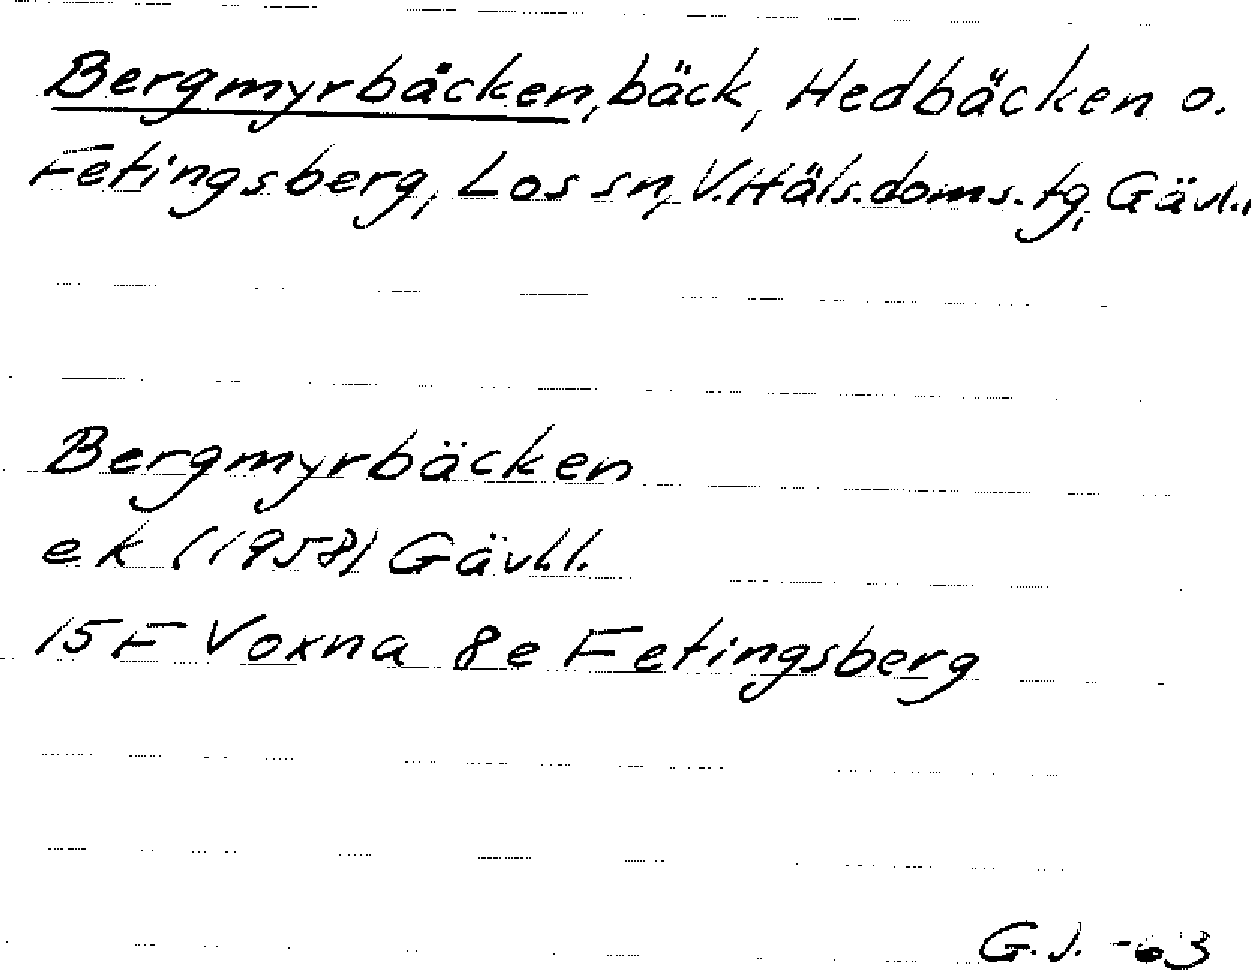 Bergmyrbäcken, bäck, Hedbäcken o.
Fetingsberg, Los sn, V. Häls. doms. tg, Gävl.,
Bergmyrbäcken
ek (1958) Gävl.l.
15 F Voxna 8e Fetingsberg
G.J. -63